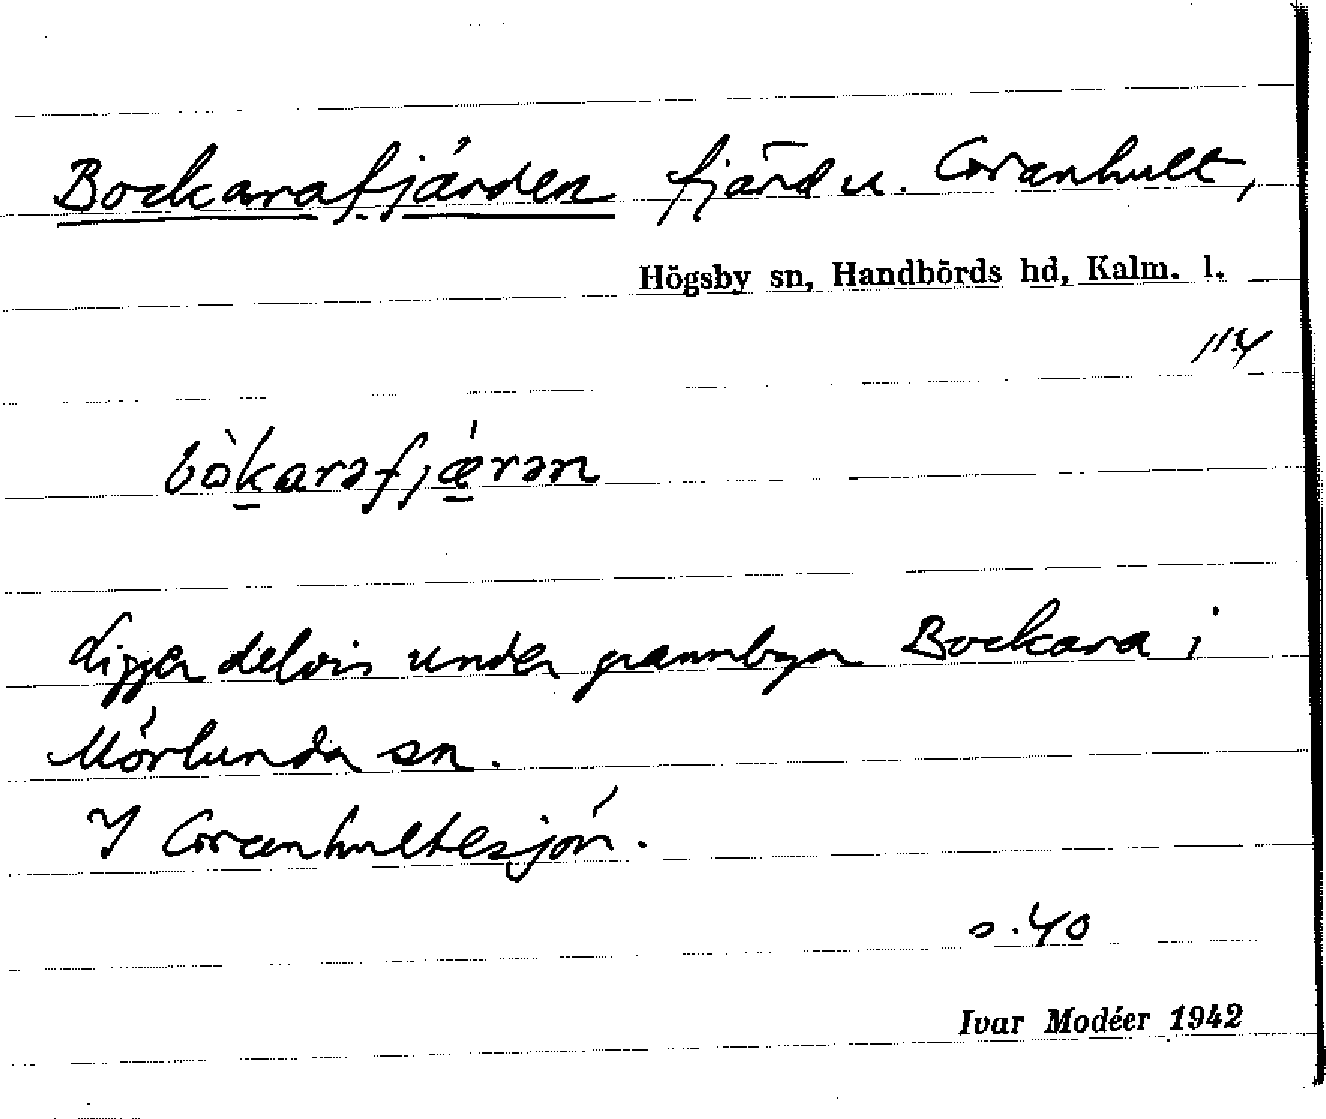 Bockarafjärden fjärd u. Granhult,
Högsby sn, Handbörds hd, Kalm. l.
114
bòkarəfjǽrən
Ligger delvis under grannbyn Bockara i
Mörlunda sn.
I Granhultesjön.
s. 40
Ivar Modéer 1942